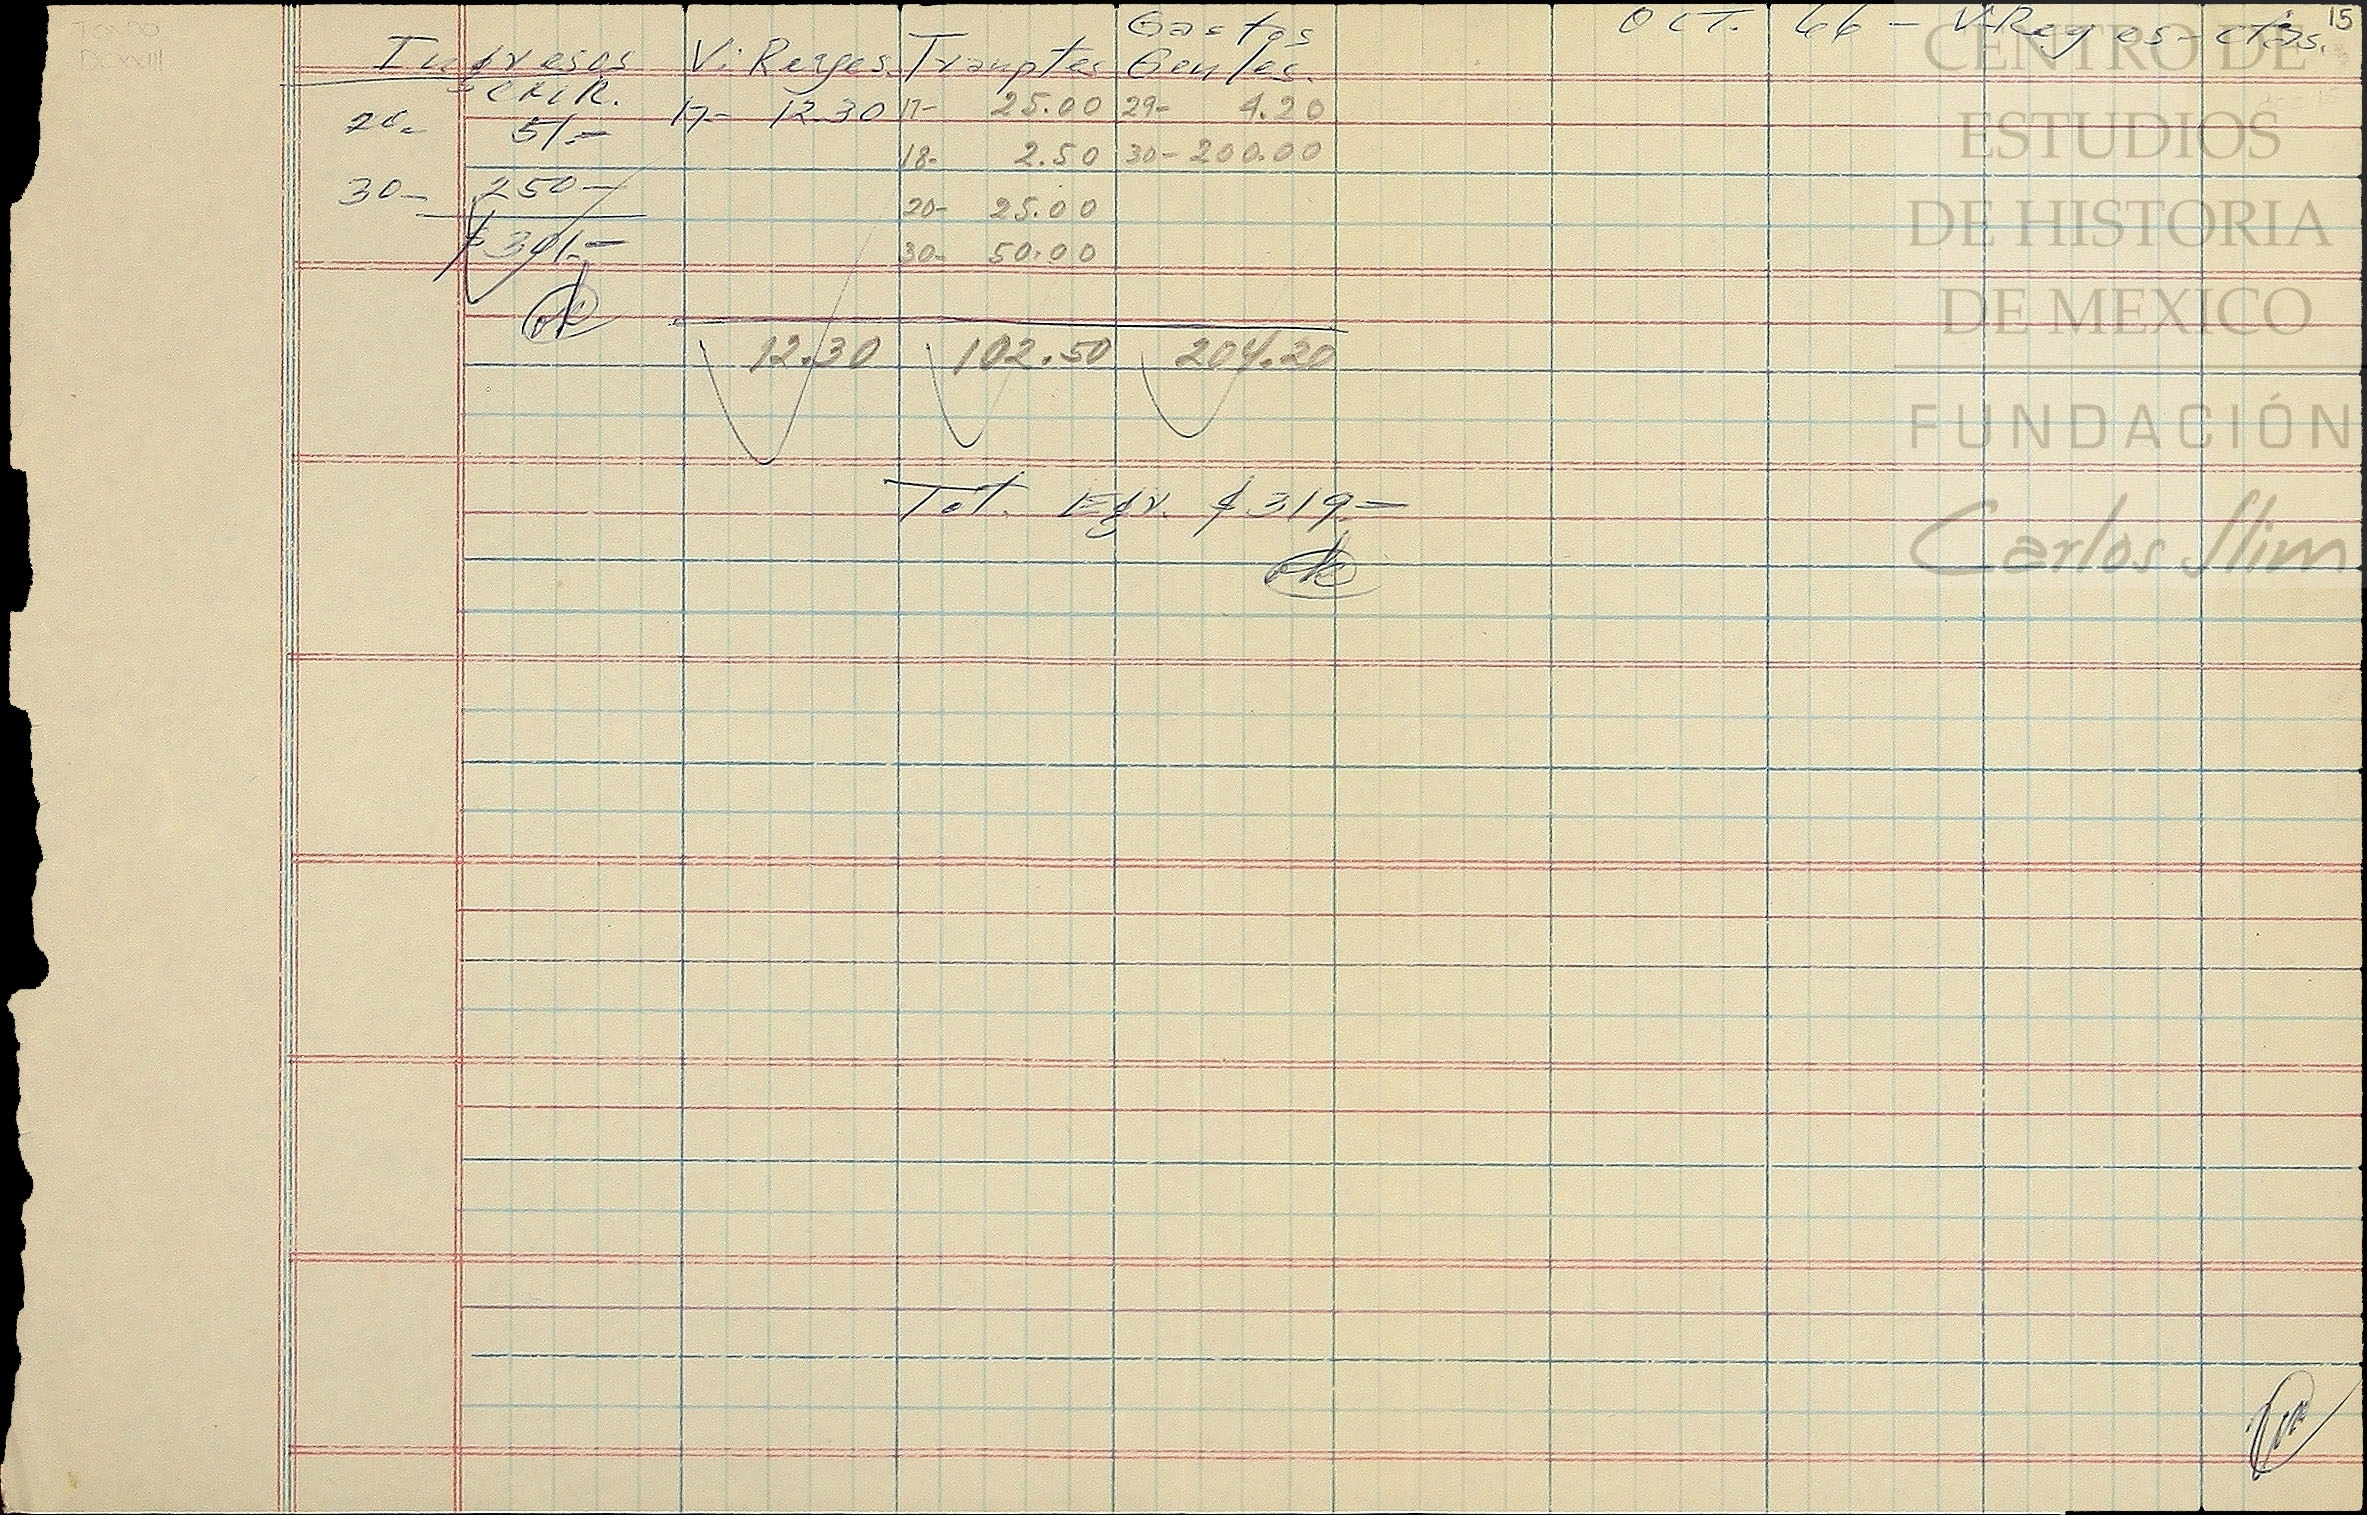 OCT. 66 - V. Reyes - ctas. 15
Ingresos V. Reyes. Tranptes Gastos Genles.
CNCR.
20- 51.- 17- 12.30 17- 25.00 29- 4.20
18- 2.50 30- 200.00
30- 250- 20- 25.00
$301.- 30- 50.00
ok
12.30 102.50 204.20
Tot. Egr. $319.-
ok
CENTRO DE
ESTUDIOS
DE HISTORIA
DE MEXICO
FUNDACIÓN
Carlos Slim